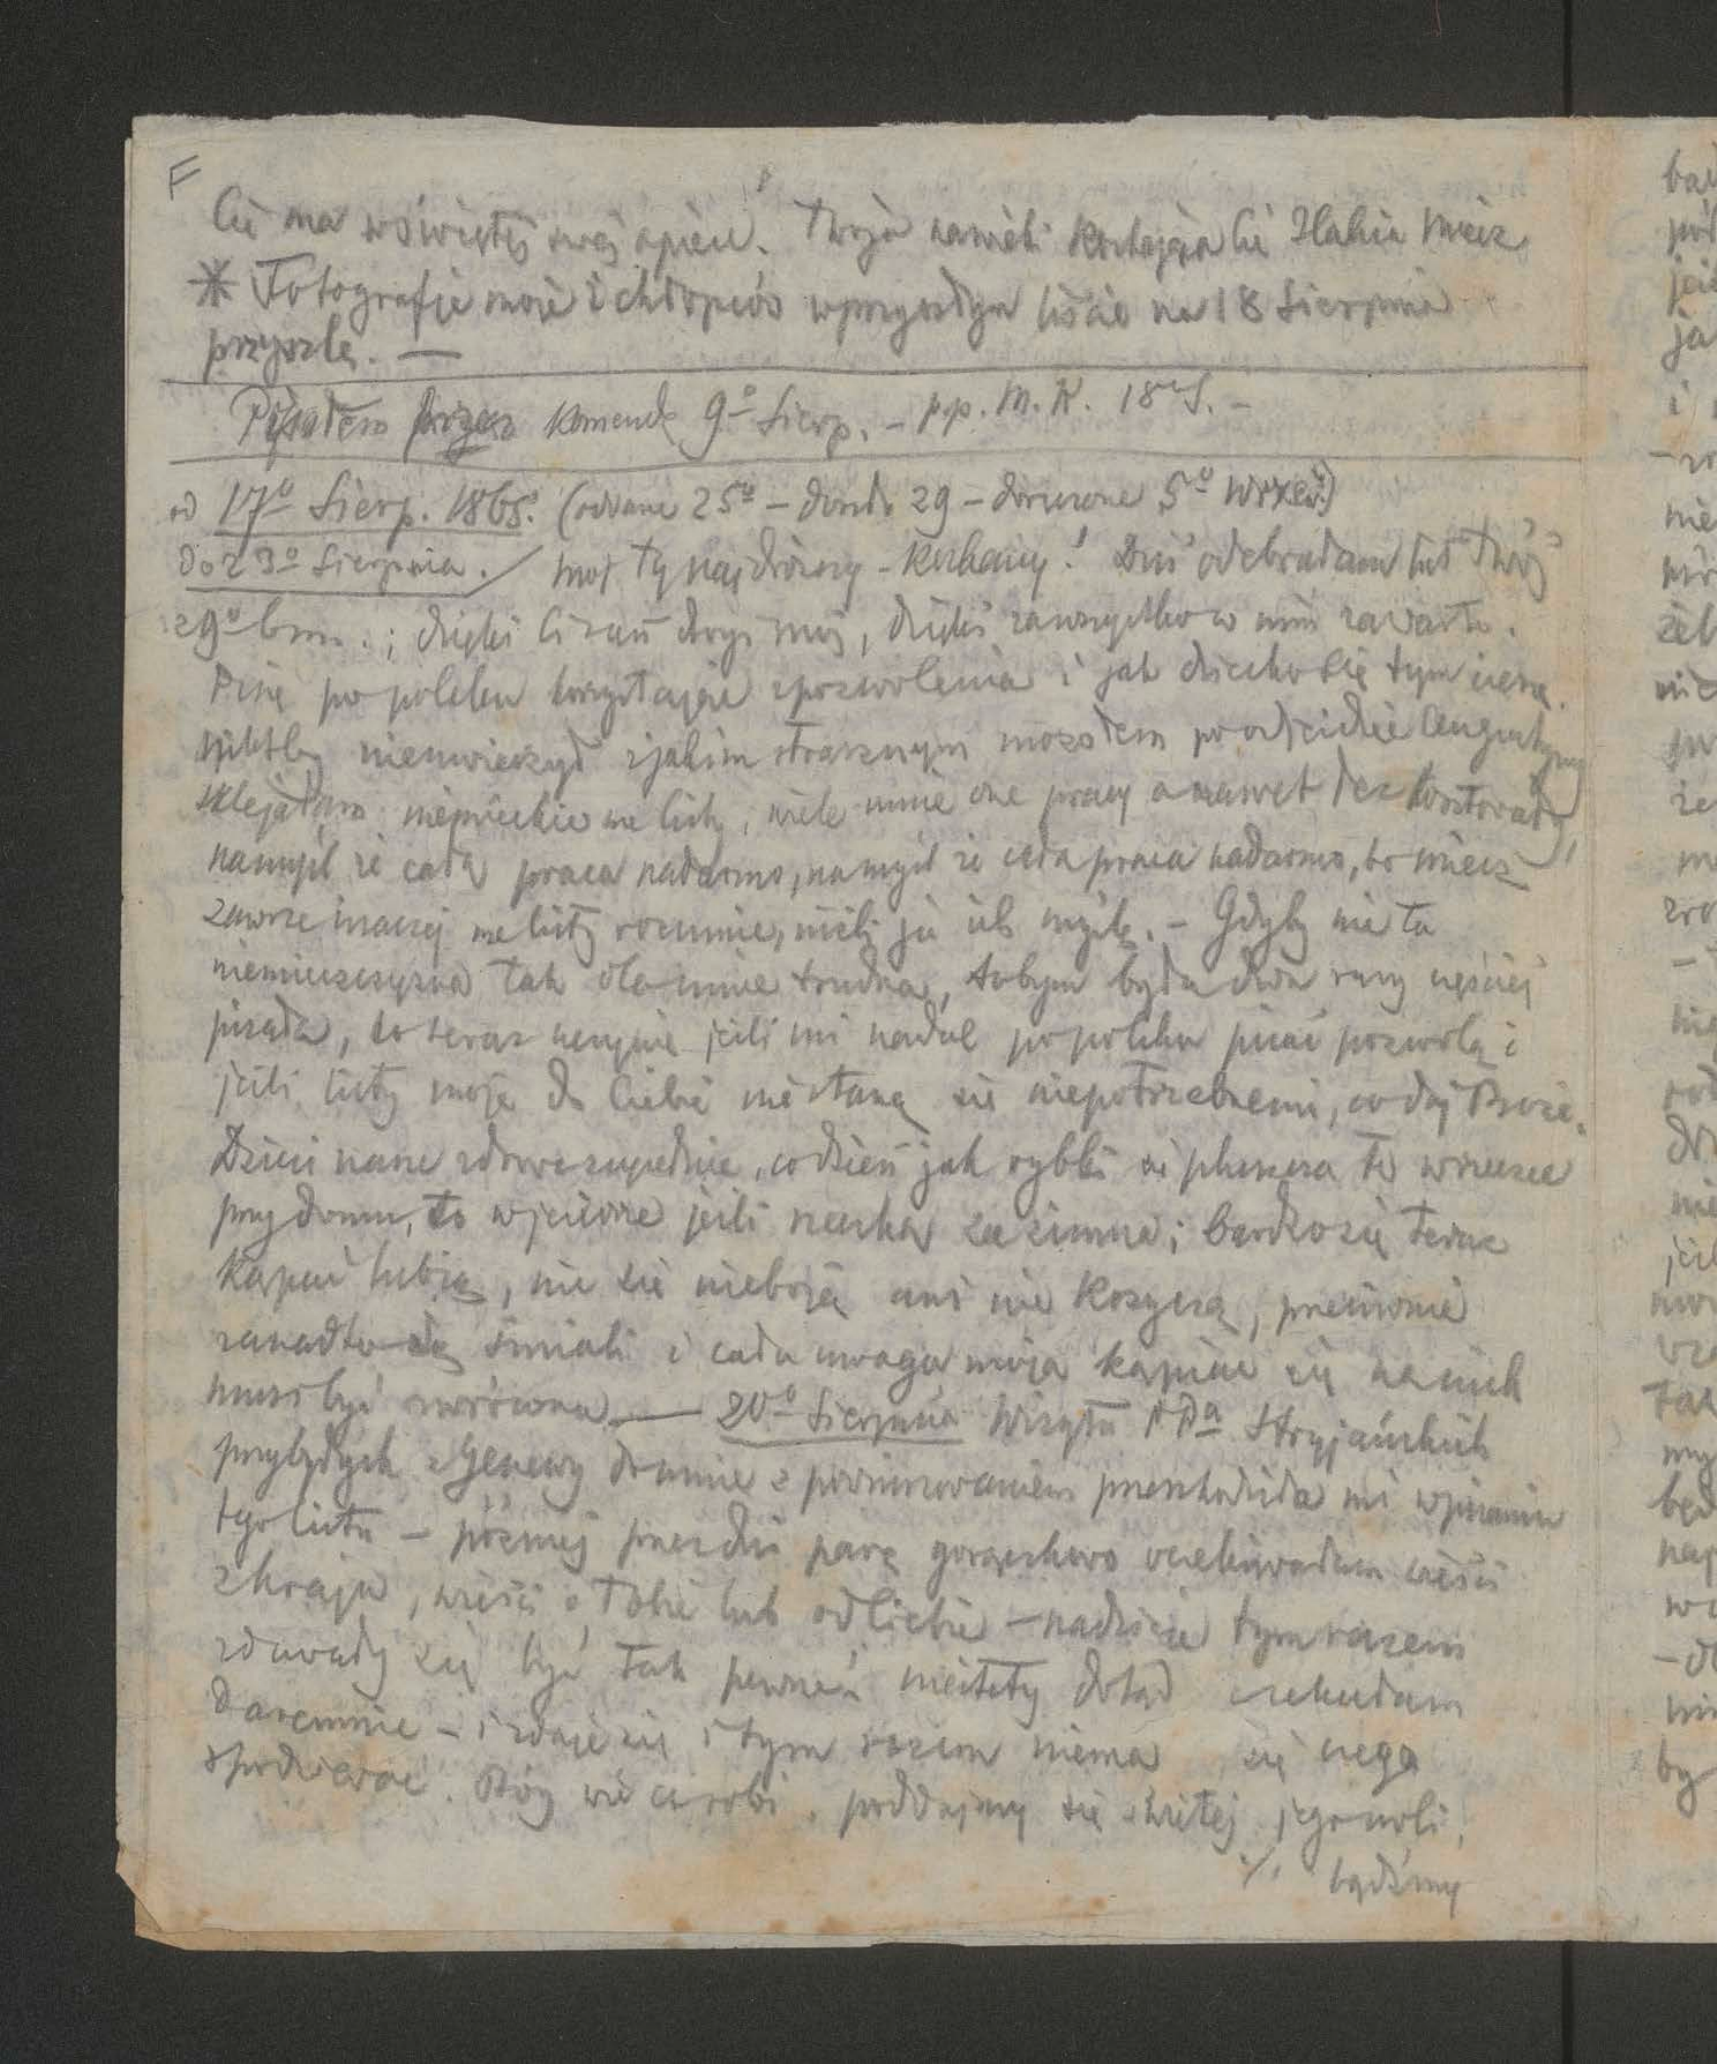 F
Cię ma w świętéj swej opiece. Twoja na wieki kochająca Cię Halina Miecz.
* Fotografje moje i chłopców w przyszłym liście na 18 Sierpnia
przyszlę. —
Pisałem przez Komendę 9º Sierp. – pp. M. K. 18º S. –
od 17º Sierp. 1865. (oddane 25º – doszło 29 – doruczone 5º Wrześ.)
do 23º Sierpnia. / mój Ty najdroższy – kochany! Dziś odebrałam list Twój
z 9º bm.; dzięki Ci zań drogi mój, dzięki za wszystko w nim zawarte.
Piszę po polsku korzystając z pozwolenia i jak dziecko się tym cieszę.
Niktby nieuwierzył z jakim strasznym mozołem po odjeździe Augustyny
sklejałam niemieckie me listy, wiele mnie one pracy a nawet łez kosztowały,
na myśl że cała praca nadarmo, na myśl że cała praca nadarmo, bo Miecz
zawsze inaczej me listy rozumie, niżli ja ich myślę. – Gdyby nie ta
niemiecczyzna tak dla mnie trudna, tobym była dwa razy częściej
pisała, co teraz uczynię jeśli mi nadal po polsku pisać pozwolą i
jeśli listy moje do Ciebie nie staną się niepotrzebnemi, co daj Boże.
Dzieci nasze zdrowe zupełnie, codzień jak rybki się pluszczą to w rzeczce
przy domu, to w jeziorze jeśli rzeczka za zimna; bardzo się teraz
kąpać lubią, nic się nieboją ani nie krzyczą, przeciwnie
zanadto są śmiali i cała uwaga moja kąpiąc się na nich
musi być zwrócona. — 20º Sierpnia Wizyta PPa Stryjeńskich
przybyłych z Genewy do mnie z powinszowaniem przeszkodziła mi w pisaniu
tego listu – później przez dni parę gorączkowo oczekiwałam wieści
z kraju, wieści o Tobie lub od Ciebie – nadzieje tym razem
zdawały się być tak pewne a niestety dotąd czekałam
daremnie – i zdaje się i tym razem niema się czego
spodziewać. Bóg wie co robi, poddajmy się świętej jego woli,
./. bądźmy